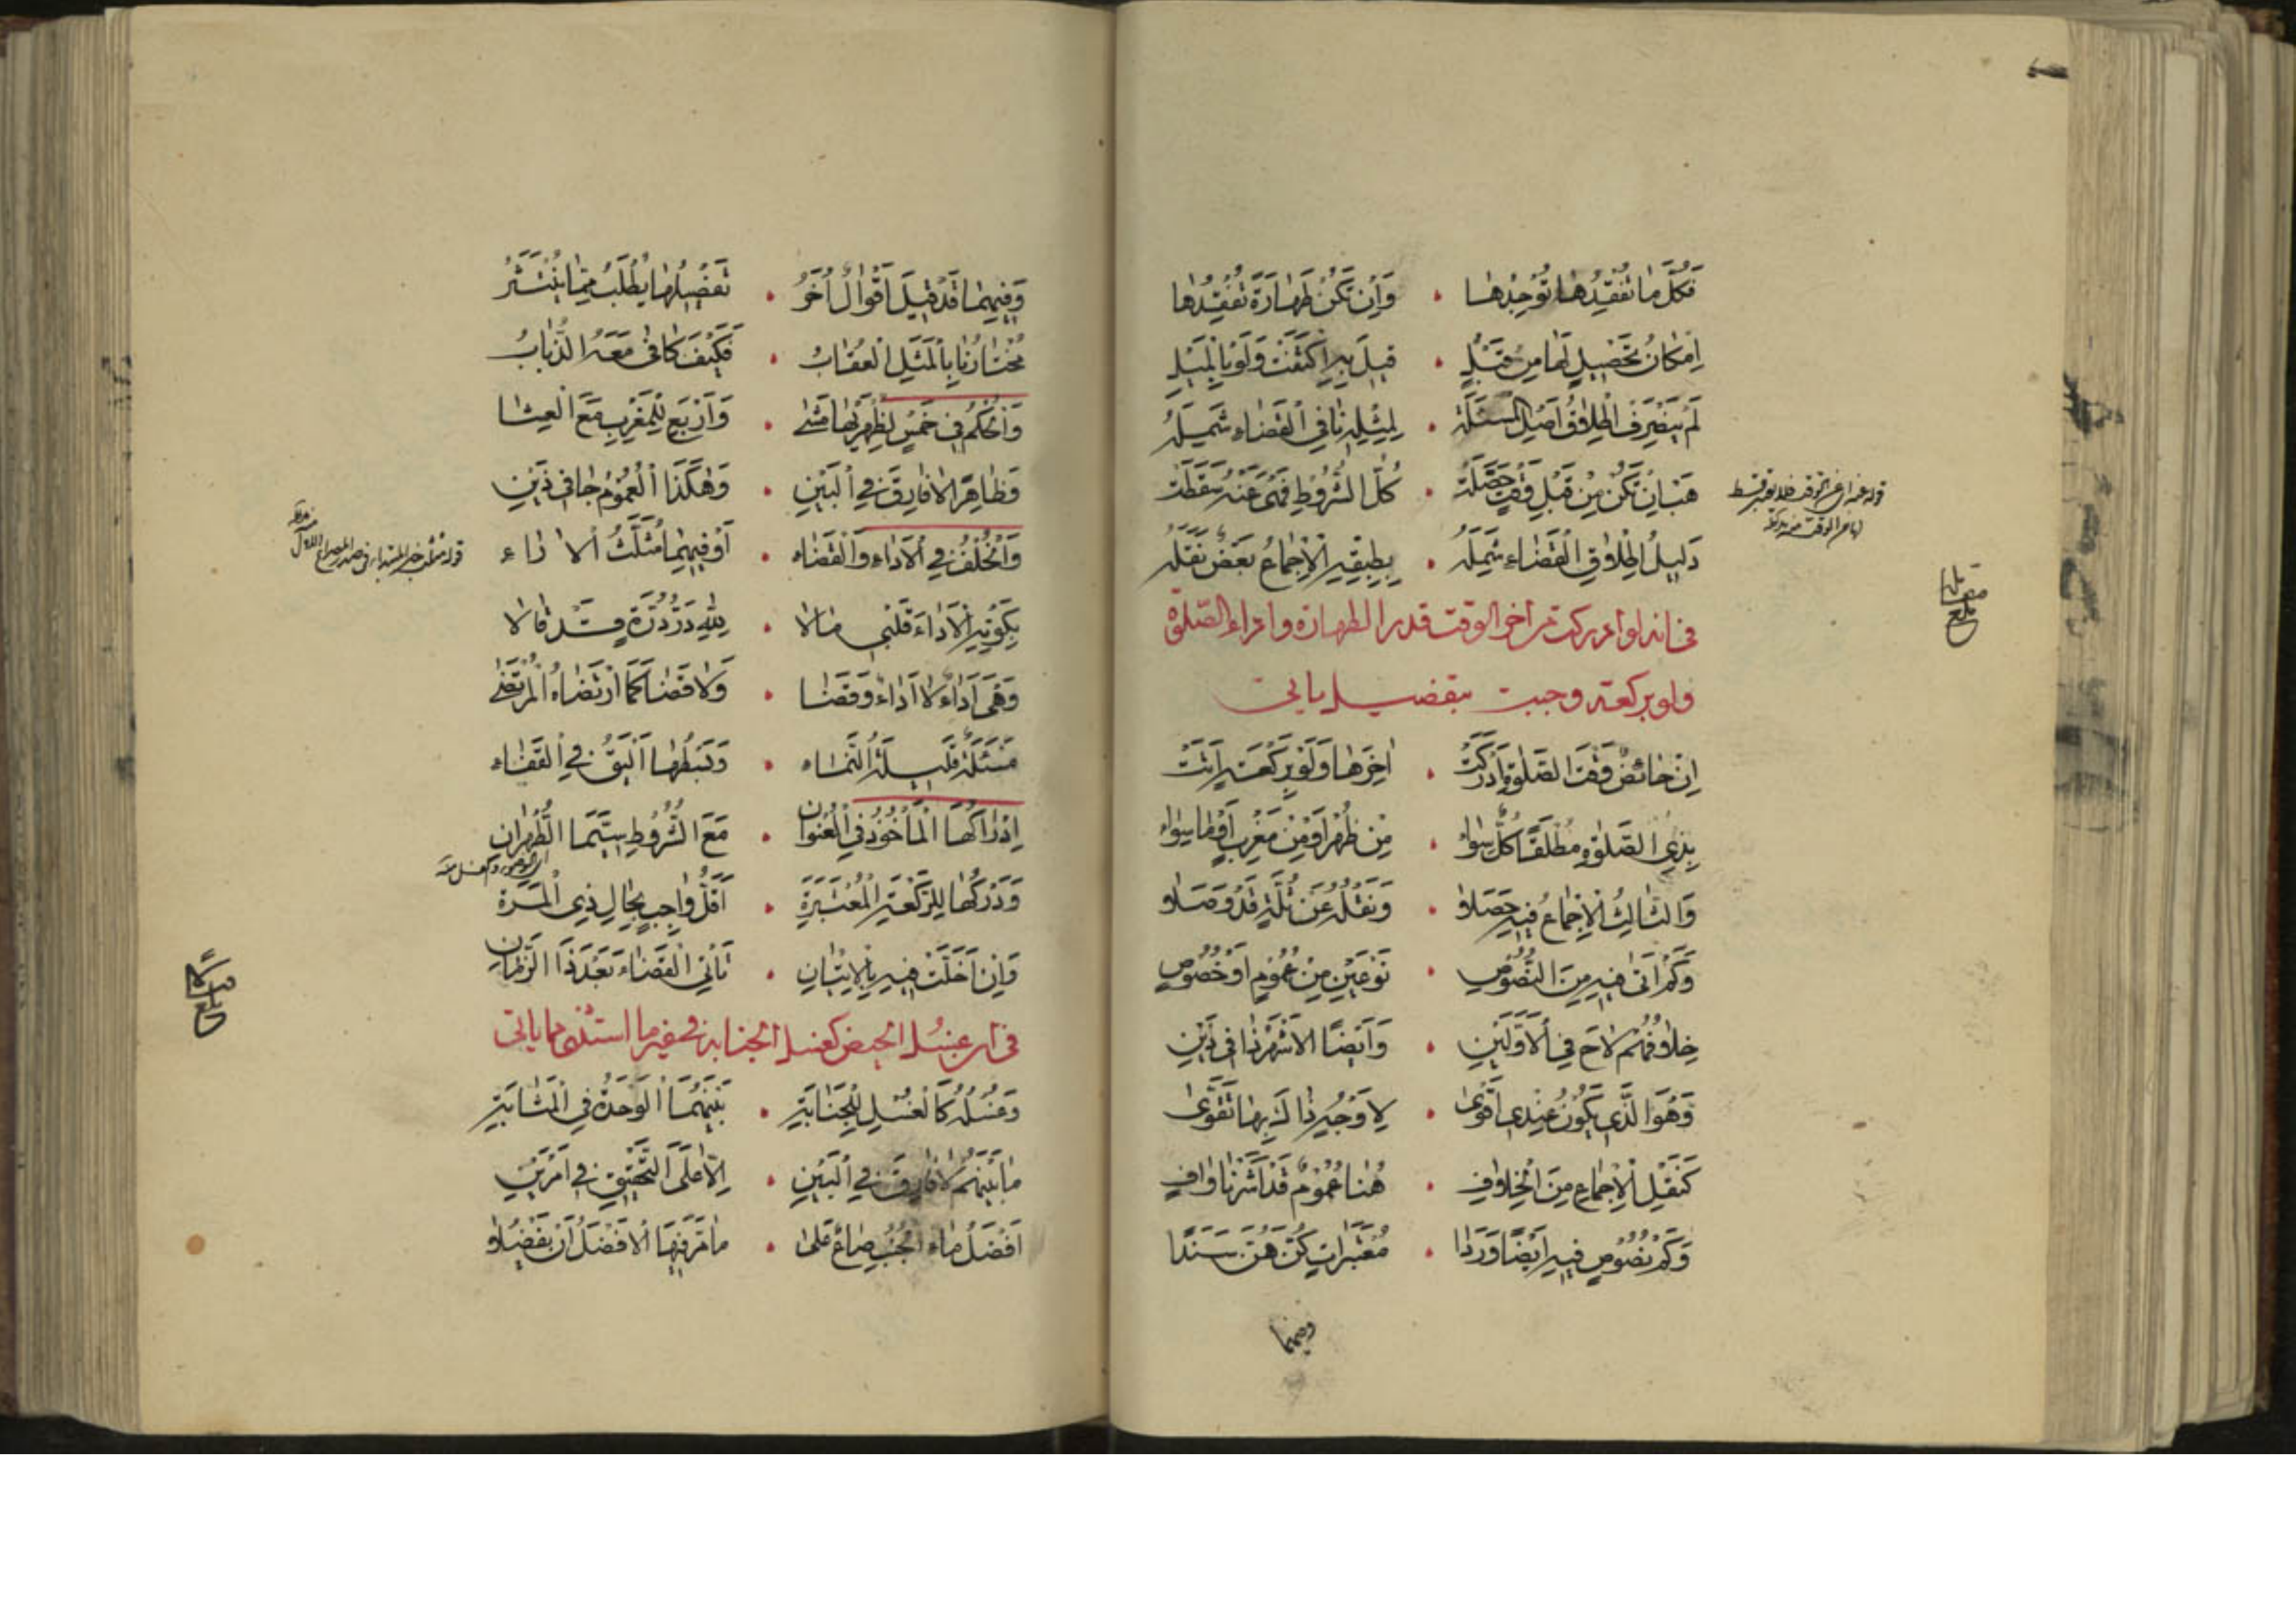 فَكُلَّ مَا تَفْقِدُهَا تُوجِدُهَا • وَإِنْ تَكُنْ طَهَارَةً تَفْقِدُهَا
إِمْكَانُ تَحْصِيلٍ لَهَا مِنْ قَبْلُ • قِيلَ بِهِ اكْتَفَتْ وَلَوْ بِالْمَيْلِ
لَمْ يَنْصَرِفْ إِطْلَاقُ أَصْلِ الْمَسْئَلَةِ • لِمِثْلِهِ نَافِي الْقَضَاءِ شَمِلَهُ
هَبْ إِنْ تَكُنْ مِنْ قَبْلِ وَقْتٍ حَصَّلَتْ • كُلَّ الشُّرُوطِ فَهِيَ عَنْهُ سَقَطَتْ
دَلِيلُ إِطْلَاقِ الْقَضَاءِ شَمِلَهُ • بِطِبْقِهِ الْإِجْمَاعُ بَعْضٌ نَقَلَهُ
في انه لو ادركت من اخر الوقت قدر الطهارة واداء الصلوة
ولو بركعة وجبت بتفصيل ياتي
إِنْ حَائِضٌ وَقْتَ الصَّلٰوةِ أَدْرَكَتْ • آخِرَهَا وَلَوْ بِرَكْعَةٍ أَتَتْ
بِذِي الصَّلٰوةِ مُطْلَقًا كُلٌّ سَوَاءٌ • مِنْ ظُهْرٍ أَوْ مِنْ مَغْرِبٍ أَوْ مَا سِوَاءُ
وَالثَّالِثُ الْإِجْمَاعُ فِيهِ حَصَلَا • وَنَقْلُهُ عَنْ ثُلَّةٍ قَدْ وَصَلَا
وَكَمْ أَتَى فِيهِ مِنَ النُّصُوصِ • نَوْعَيْنِ مِنْ عُمُومٍ أَوْ خُصُوصِ
خِلَافُهُمْ لَاحَ فِي الْأَوَّلَيْنِ • وَأَيْضًا الْأَشْهَرُ ذَا فِي ذَيْنِ
وَهُوَ الَّذِي يَكُونُ عِنْدِي أَقْوَى • لِأَوْجُهٍ ذَا لَكَ بِهَا تَقَوَّى
كَنَقْلِ الْإِجْمَاعِ مِنَ الْخِلَافِ • هُنَا عُمُومٌ قَدْ أَشَرْنَا وَافٍ
وَكَمْ نُصُوصٍ فِيهِ أَيْضًا وَرَدَا • مُعْتَبَرَاتٍ كُنَّ هُنَّ سَنَدًا
بلغ
وَفِيهِمَا قَدْ قِيلَ أَقْوَالٌ أُخَرُ • تَفْصِيلُهَا يُطْلَبُ مِمَّا يُنْتَشَرُ
مُخْتَارُنَا بِالْمَثَلِ الْعُقَابُ • فَكَيْفَ كَافَى مَعَهُ الذُّبَابُ
وَالْحُكْمُ فِي خَمْسٍ لِظُهْرَيْهَا مَشَى • وَأَرْبَعٍ لِلْمَغْرِبِ مَعَ الْعِشَا
وَظَاهِرًا لَا فَارِقَ فِي الْبَيْنِ • وَهٰكَذَا الْعُمُومُ جَا فِي ذَيْنِ
وَالْخُلْفُ فِي الْأَدَاءِ وَالْقَضَاءِ • أَوْ فِيهِمَا مُثَلَّثُ الْآرَاءِ
بِكَوْنِهِ الْأَدَاءَ قَلْبِي مَالَا • لِلّٰهِ دَرُّ دُرَّةٍ قَدْ قَالَا
وَهِيَ أَدَاءٌ لَا أَدَاءٌ وَقَضَا • وَلَا قَضَا كَمَا ارْتَضَاهُ الْمُرْتَضَى
مَسْئَلَةٌ قَلِيلَةُ النَّمَاءِ • وَبَسْطُهَا أَلْيَقُ فِي الْقَضَاءِ
إِدْرَاكُهَا الْمَأْخُوذُ فِي الْعُنْوَانِ • مَعَ الشُّرُوطِ سِيَّمَا الطُّهْرَانِ
وَدَرْكُهَا لِلرَّكْعَةِ الْمُعْتَبَرَةِ • أَقَلُّ وَاجِبٍ بِحَالِ ذِي الْمَرَةِ
وَإِنْ أَخَلَّتْ فِيهِ بِالْإِتْيَانِ • تَأْتِي الْقَضَاءَ بَعْدَ ذَا الزَّمَانِ
في ان غسل الحيض كغسل الجنابة في غير ما استثنى مما ياتي
وَغُسْلُهُ كَالْغُسْلِ لِلْجَنَابَةِ • بَيْنَهُمَا الْوَحْدَةُ فِي الْمَثَابَةِ
مَا بَيْنَهُمْ لَا فَارِقَ فِي الْبَيْنِ • إِلَّا عَلَى التَّحْقِيقِ فِي أَمْرَيْنِ
أَفْضَلُ مَاءِ الْجُنُبِ صَاعٌ عَلَى • مَا مَرَّ فِيهَا الْأَفْضَلُ أَنْ يَفْضُلَا
بلغ